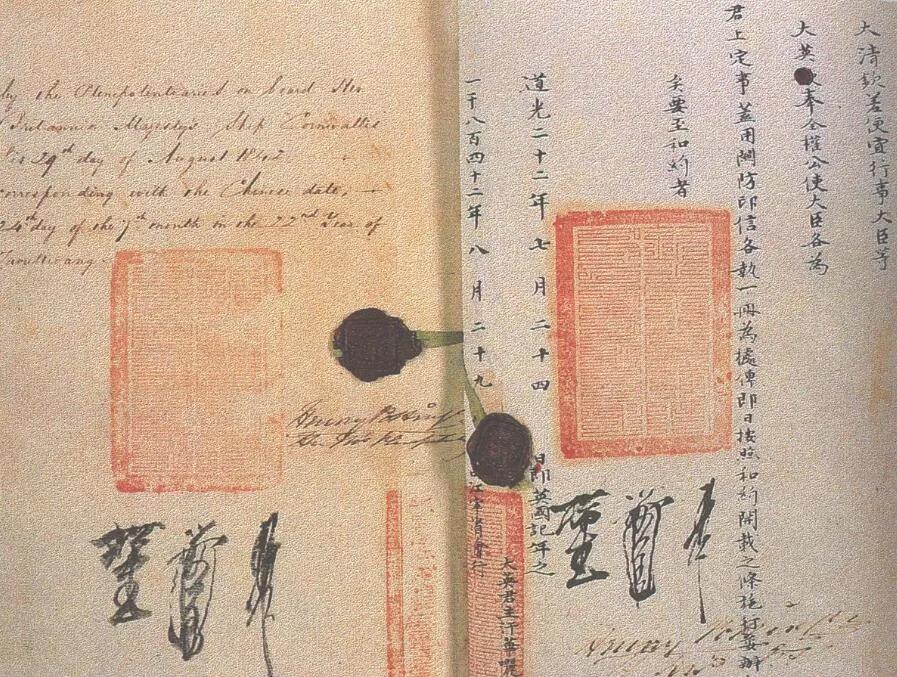 by the Plenipotentiaries on board Her
Britannic Majesty's Ship Cornwallis
is 29th day of August 1842
corresponding with the Chinese date,
24th day of the 7th month in the 22nd Year of
Taoukwang.
Henry Pottinger
大清欽差便宜行事大臣等
大英奉全權公使大臣各為
君上定事蓋用關防印信各執一冊為據俾即日按照和約開載之條施行妥辦
矣要至和約者
道光二十二年七月二十四日即英國記年之
一千八百四十二年八月二十九由江寧省會行
大英君主汗華囇
Henry Pottinger